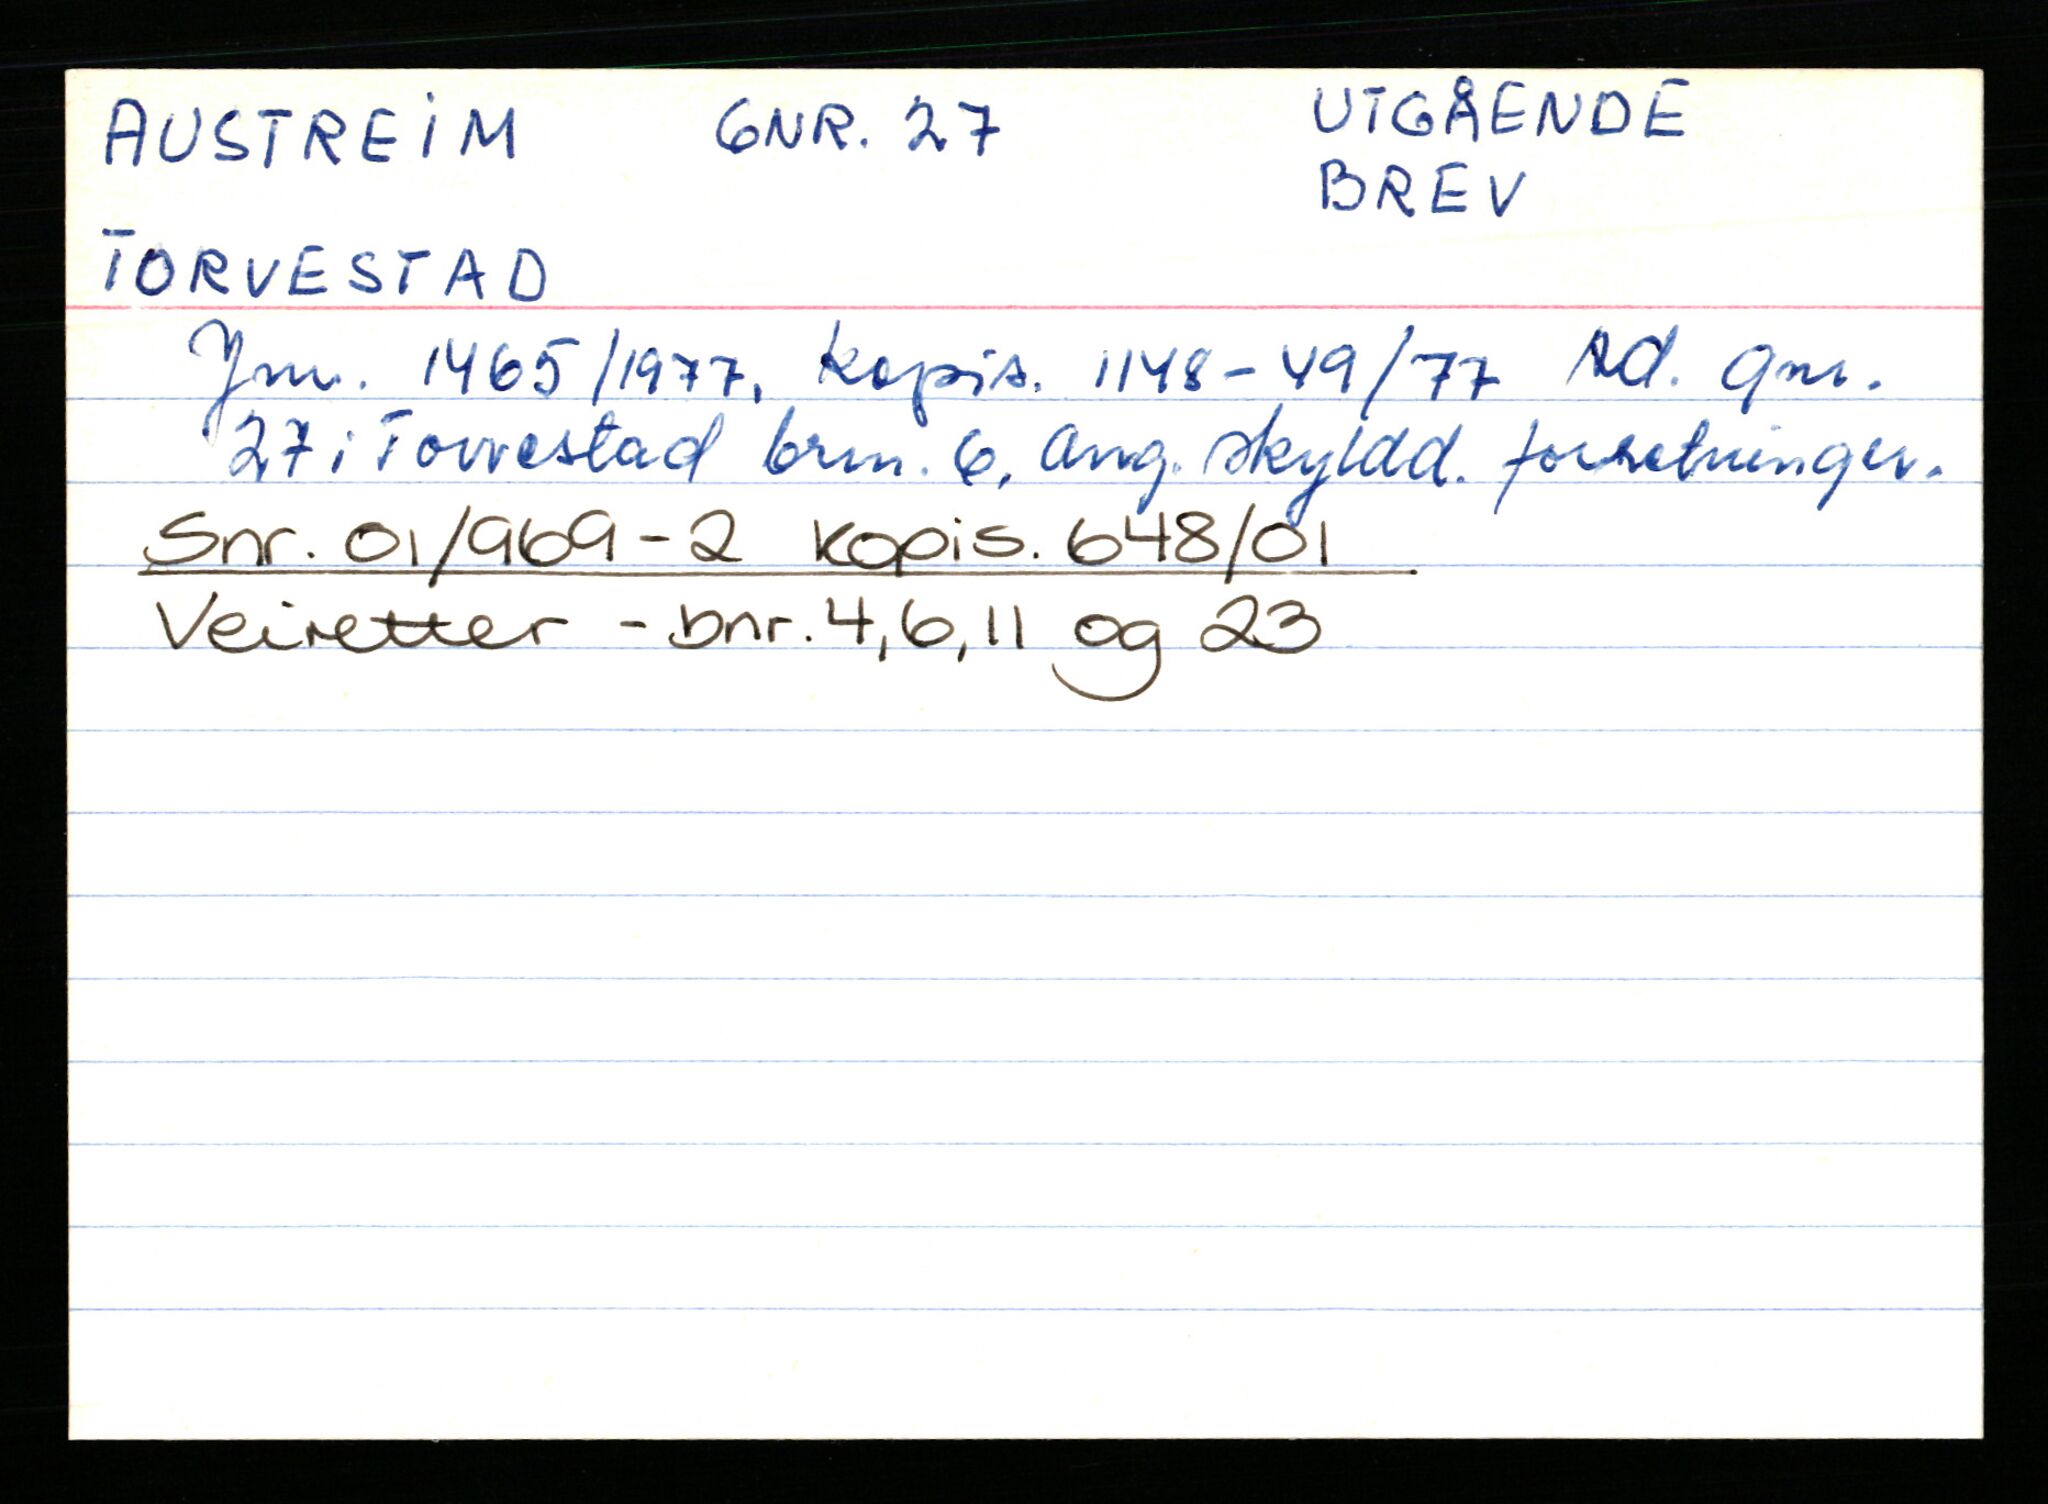 AUSTREIM GNR. 27 UTGÅENDE
BREV
TORVESTAD
Jnr. 1465/1977, kopis. 1148-49/77 Ad. gnr.
27 i Torvestad brnr. 6, ang. skyldd. forretninger.
Snr. 01/969-2 kopis. 648/01
Veiretter - bnr. 4, 6, 11 og 23